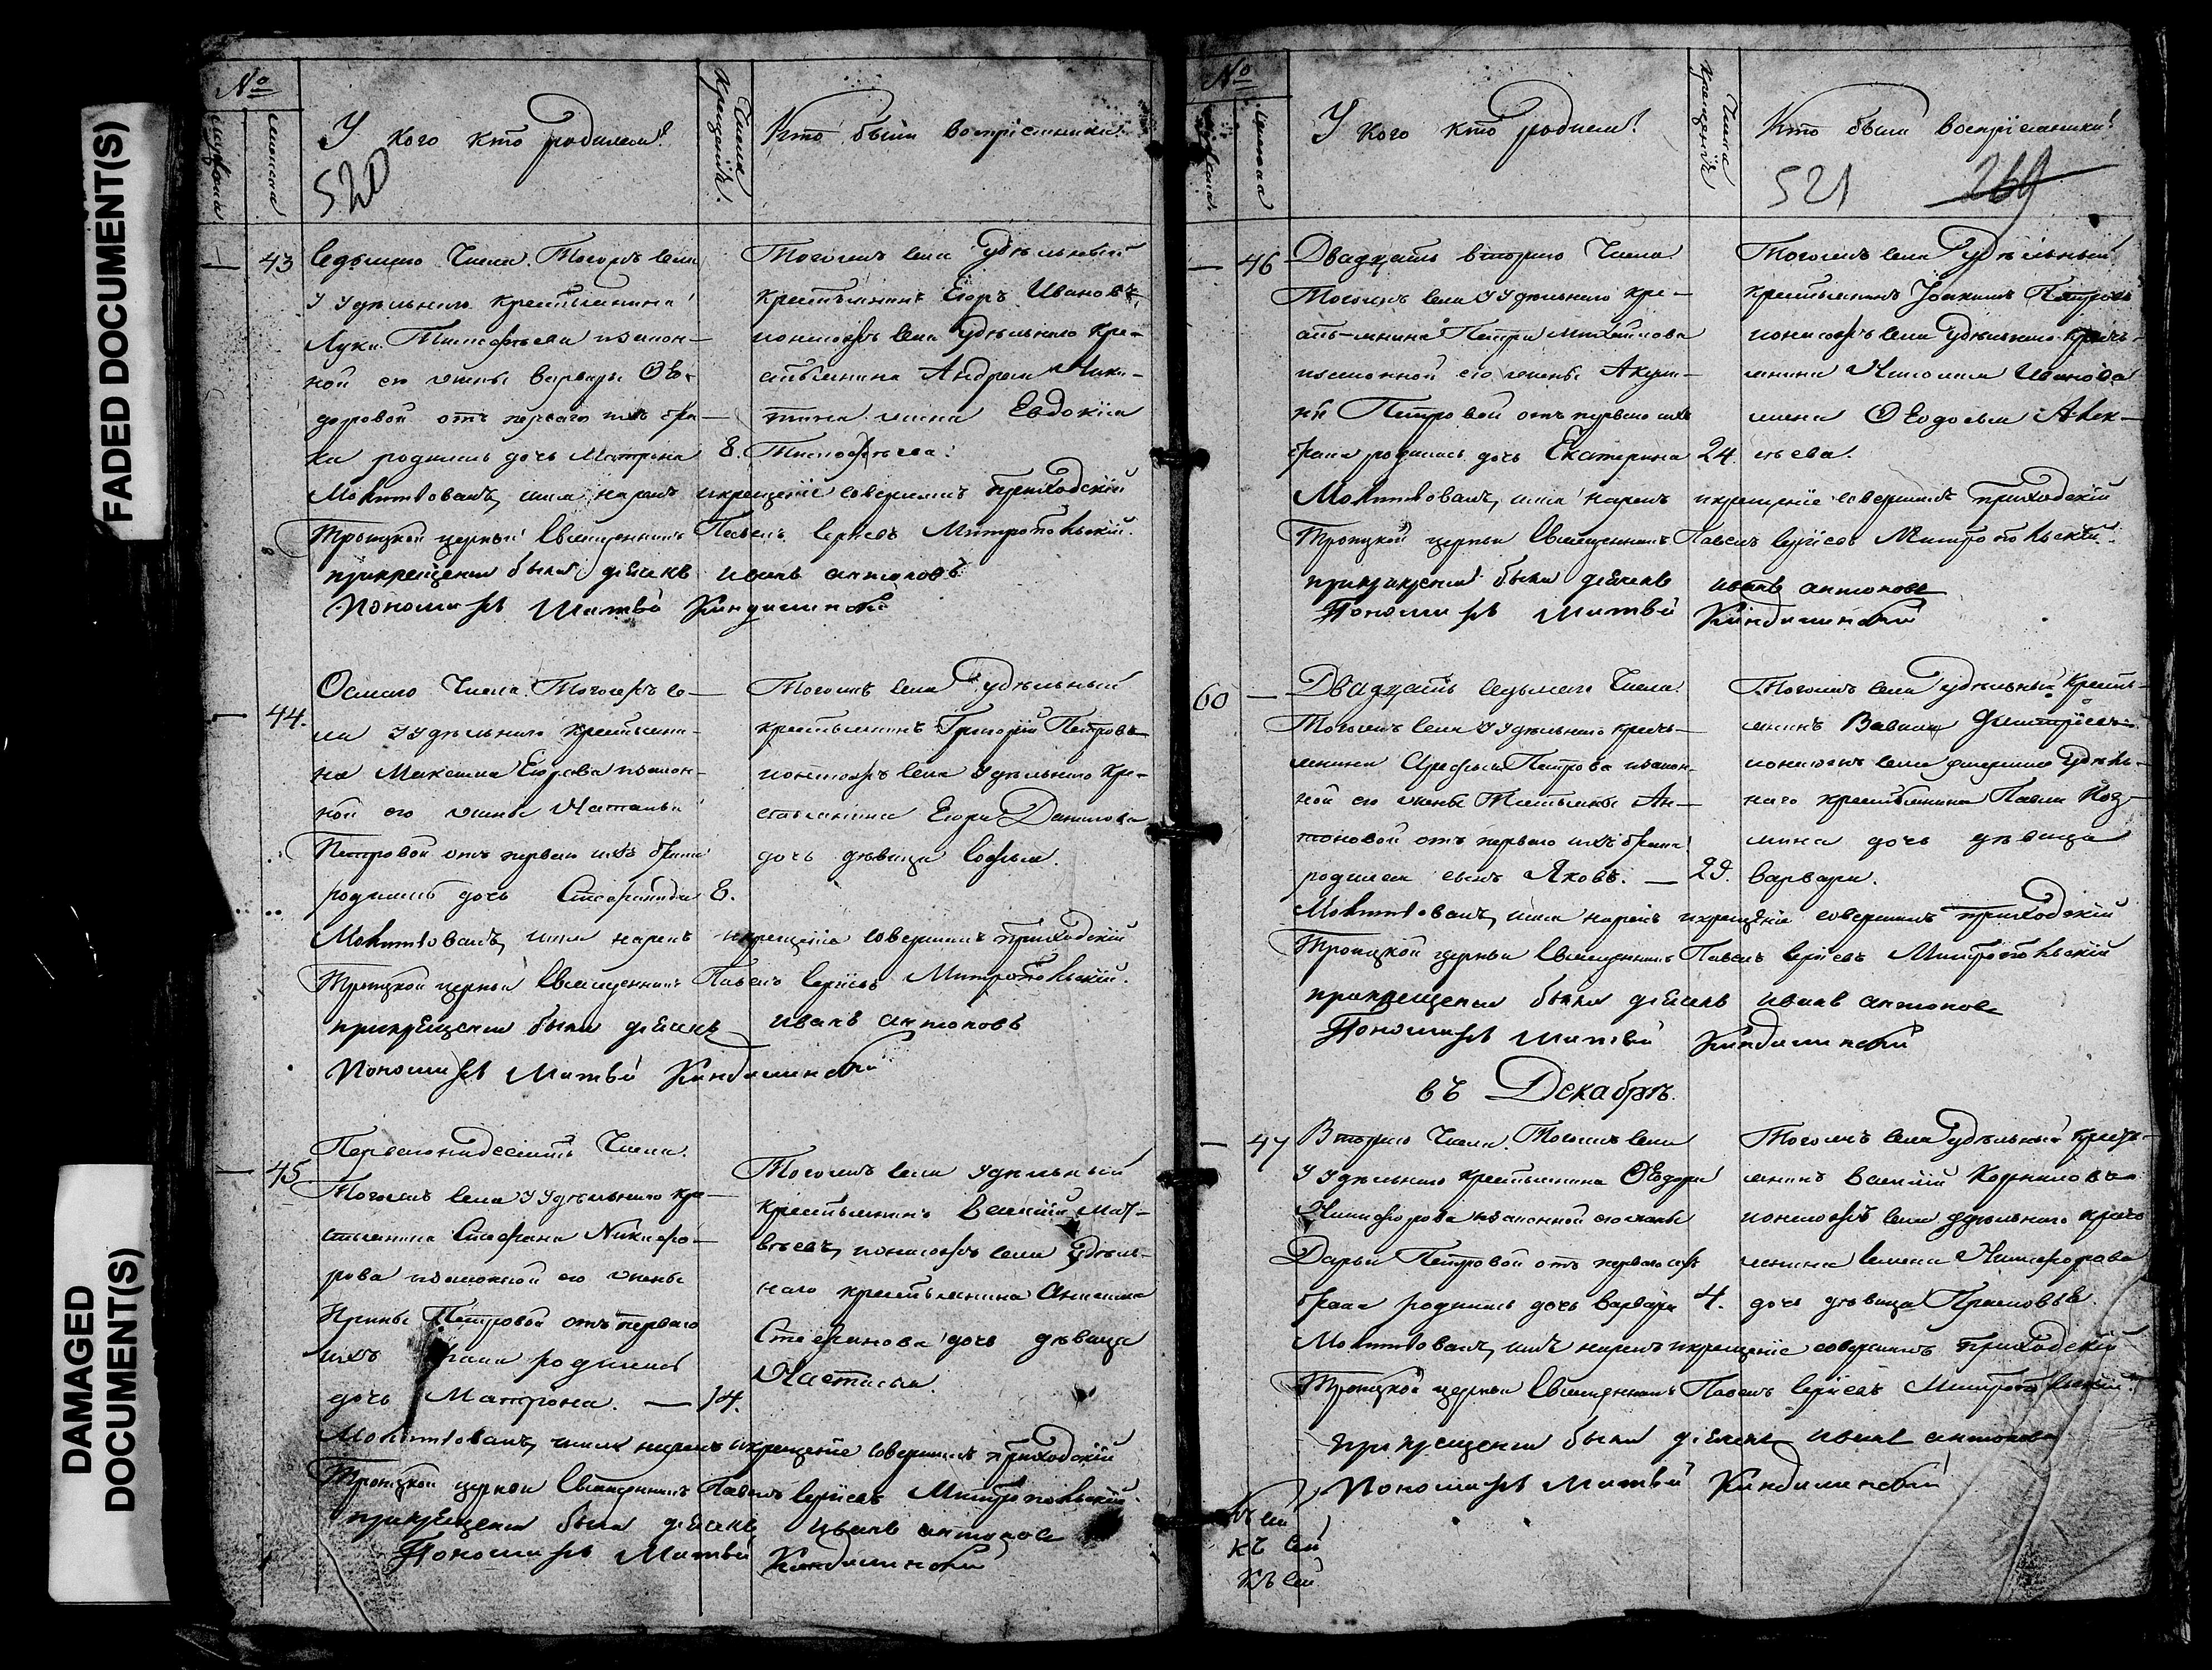 FADED DOCUMENT(S)
DAMAGED
DOCUMENT(S)
№
мужеска
женска
У кого кто родился?
Числа
Крещенiя.
Кто были воспрiемники?
520
43
Седьмаго Числа. Тогожъ села
У Удѣльнаго крестьянина
Луки Тимофѣева изакон-
ной его жены Варвары Ѳео-
доровой отъ перваго ихъ бра-
ка родилась дочь Матрона
8.
Тогожъ села Удѣльный
крестьянинъ Егоръ Ивановъ,
итогожъ села Удѣльнаго кре-
стьянина Андрея Ники-
тина жена Евдокiя
Тимофѣева.
Молитвовалъ, имя нарекъ икрещенiе совершилъ приходскiй
Троицкой церкви Священникъ Павелъ Сергiевъ Митропольскiй.
прикрещенiи были дьячекъ иванъ антоновъ
Пономарь Матвѣй
44.
Осьмаго Числа. Тогожъ се-
ла У Удѣльнаго крестьяни-
на Максима Егорова изакон-
ной его жены Натальи
Петровой отъ перваго ихъ брака
родилась дочь Стефанида
8.
Тогожъ села Удѣльный
крестьянинъ Григорiй Петровъ
итогожъ села Удѣльнаго кре-
стьянина Егора Данилова
дочь дѣвица Софья.
Молитвовалъ, имя нарекъ икрещенiе совершилъ приходскiй
Троицкой церкви Священникъ Павелъ Сергiевъ Митропольскiй.
прикрещенiи были дьячекъ иванъ антоновъ
Пономарь Матвѣй
45
Первагонадесять Числа.
Тогожъ села У Удѣльнаго кре-
стьянина Стефана Никифо-
рова изаконной его жены
Ирины Петровой отъ перваго
ихъ брака родилась
дочь Матрона.
14.
Тогожъ села Удѣльный
крестьянинъ Василiй Мат-
вѣевъ, итогожъ села Удѣль-
наго крестьянина Анисима
Стефанова дочь дѣвица
Настасья.
Молитвовалъ, имя нарекъ икрещенiе совершилъ приходскiй
Троицкой церкви Священникъ Павелъ Сергiевъ Митропольскiй.
прикрещенiи были дьячекъ иванъ антоновъ
Пономарь Матвѣй
№
У кого кто родился?
Числа
Крещенiя
Кто были воспрiемники?
521 269
46
Двадцать втораго Числа
Тогожъ села У Удѣльнаго кре-
стьянина Петра Михайлова
изаконной его жены Акули-
ны Петровой отъ перваго ихъ
брака родилась дочь Екатерина
24.
Тогожъ села Удѣльный
крестьянинъ Iоакимъ Петровъ
итогожъ села Удѣльнаго кресть-
янина Николая Иванова
жена Ѳеодосья Алек-
сѣева.
Молитвовалъ, имя нарекъ икрещенiе совершилъ приходскiй
Троицкой церкви Священникъ Павелъ Сергiевъ Митропольскiй.
прикрещенiи были дьячекъ иванъ антоновъ
Пономарь Матвѣй
60
Двадцать седьмаго Числа.
Тогожъ села У Удѣльнаго кресть-
янина Арефья Петрова изакон-
ной его жены Татьяны Ан-
тоновой отъ перваго ихъ брака
родился сынъ Яковъ.
29.
Тогожъ села Удѣльный кресть-
янинъ Вавила Дмитрiевъ
Удѣль-
наго крестьянина Павла Коз-
мина дочь дѣвица
Варвара.
Молитвовалъ, имя нарекъ икрещенiе совершилъ приходскiй
Троицкой церкви Священникъ Павелъ Сергiевъ Митропольскiй
прикрещенiи были дьячекъ иванъ антоновъ
Пономарь Матвѣй
въ Декабрѣ.
47
Втораго Числа. Тогожъ села
У Удѣльнаго крестьянина Ѳеодора
Никифорова изаконной его жены
Дарьи Петровой отъ перваго ихъ
брака родилась дочь Варвара
4.
Тогожъ села Удѣльный кресть-
янинъ Василiй Корниловъ
итогожъ села Удѣльнаго кресть-
янина Семена Никифорова
дочь дѣвица Прасковья.
Молитвовалъ, имя нарекъ икрещенiе совершилъ приходскiй
Троицкой церкви Священникъ Павелъ Сергiевъ Митропольскiй.
прикрещенiи были дьячекъ иванъ антоновъ
Пономарь Матвѣй
Къ сей
къ сей
Къ сей